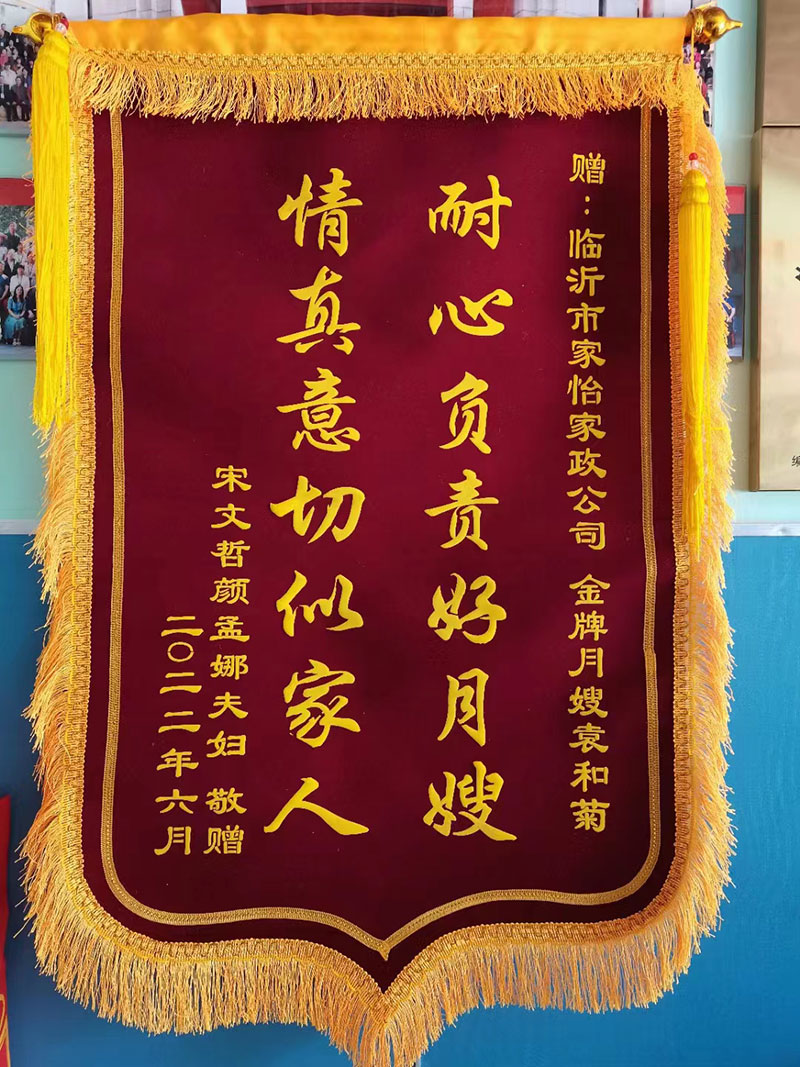 赠：临沂市家怡家政公司 金牌月嫂袁和菊
耐心负责好月嫂
情真意切似家人
宋文哲颜孟娜夫妇 敬赠
二〇二二年六月
编